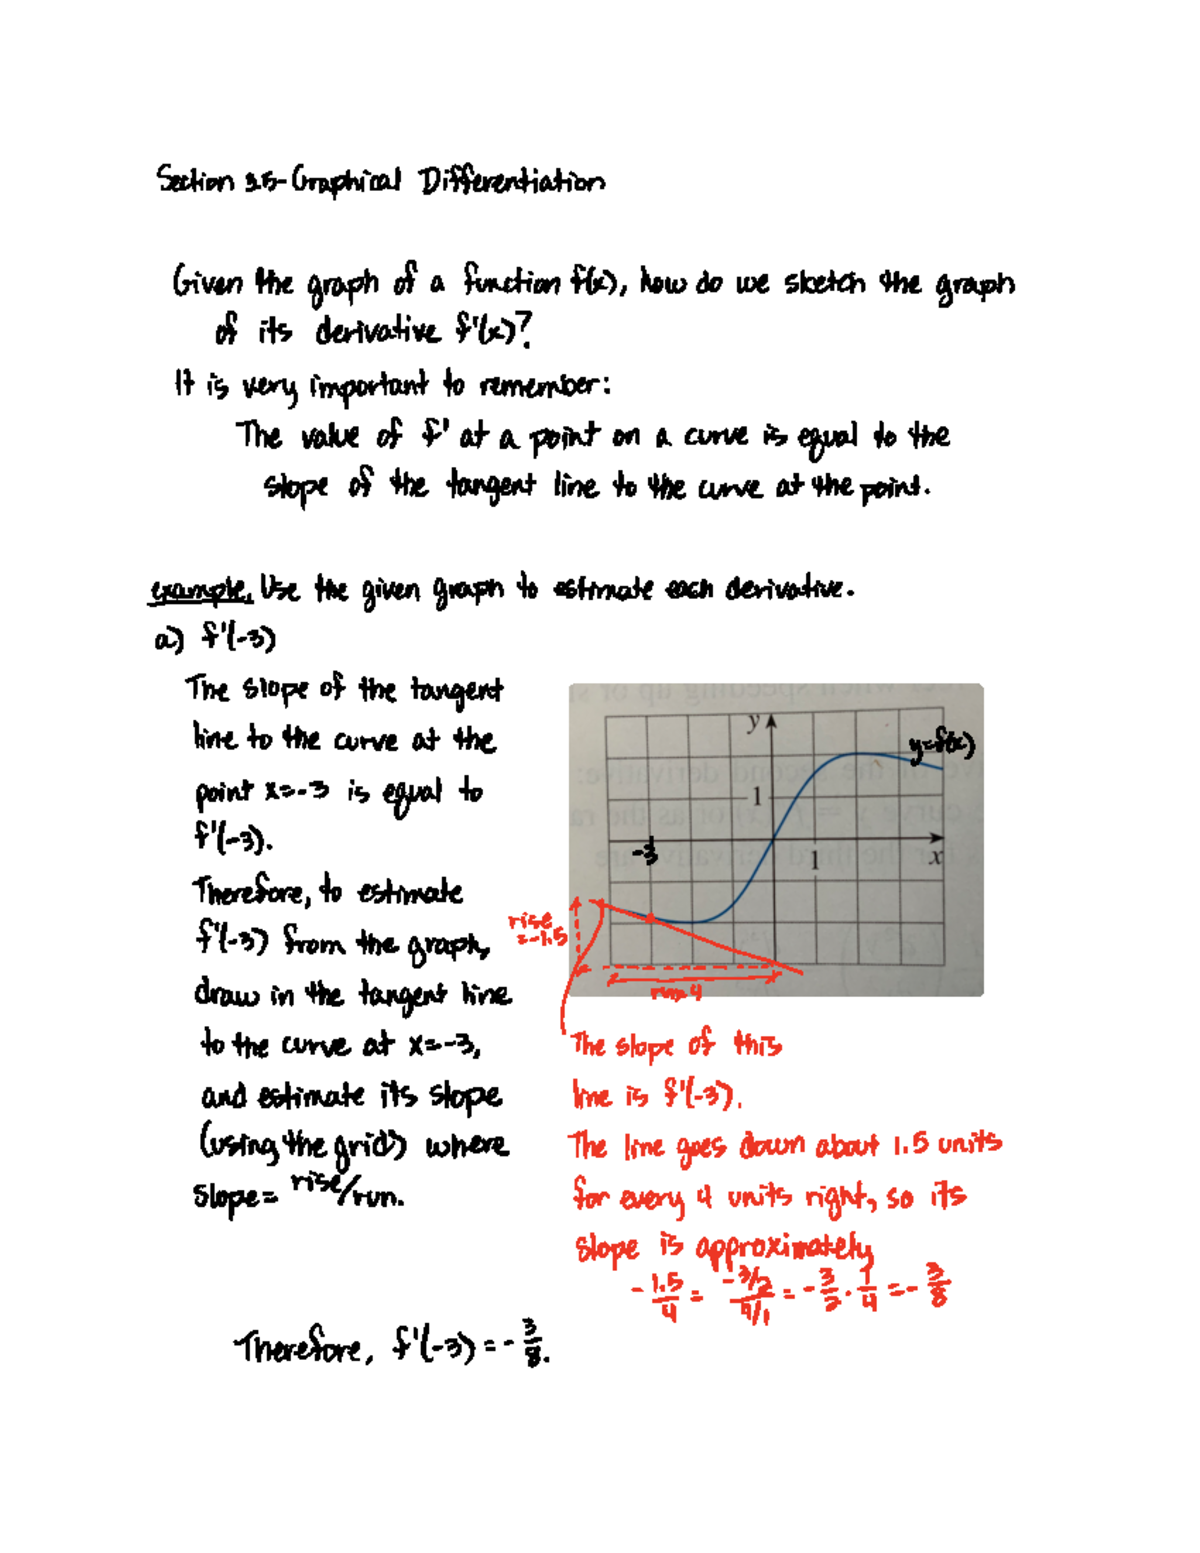 Section 3.5-Graphical Differentiation
Given the graph of a function f(x), how do we sketch the graph
of its derivative f'(x)?
It is very important to remember:
The value of f' at a point on a curve is equal to the
slope of the tangent line to the curve at the point.
example. Use the given graph to estimate each derivative.
a) f'(-3)
The slope of the tangent
line to the curve at the
point x=-3 is equal to
f'(-3).
Therefore, to estimate
f'(-3) from the graph,
draw in the tangent line
to the curve at x=-3,
and estimate its slope
(using the grid) where
slope= rise/run.
y
y=f(x)
1
-3
1
x
rise
=-1.5
run 4
The slope of this
line is f'(-3).
The line goes down about 1.5 units
for every 4 units right, so its
slope is approximately
-1.5/4 = (-3/2)/(4/1) = -3/2 · 1/4 = -3/8
Therefore, f'(-3) = -3/8.